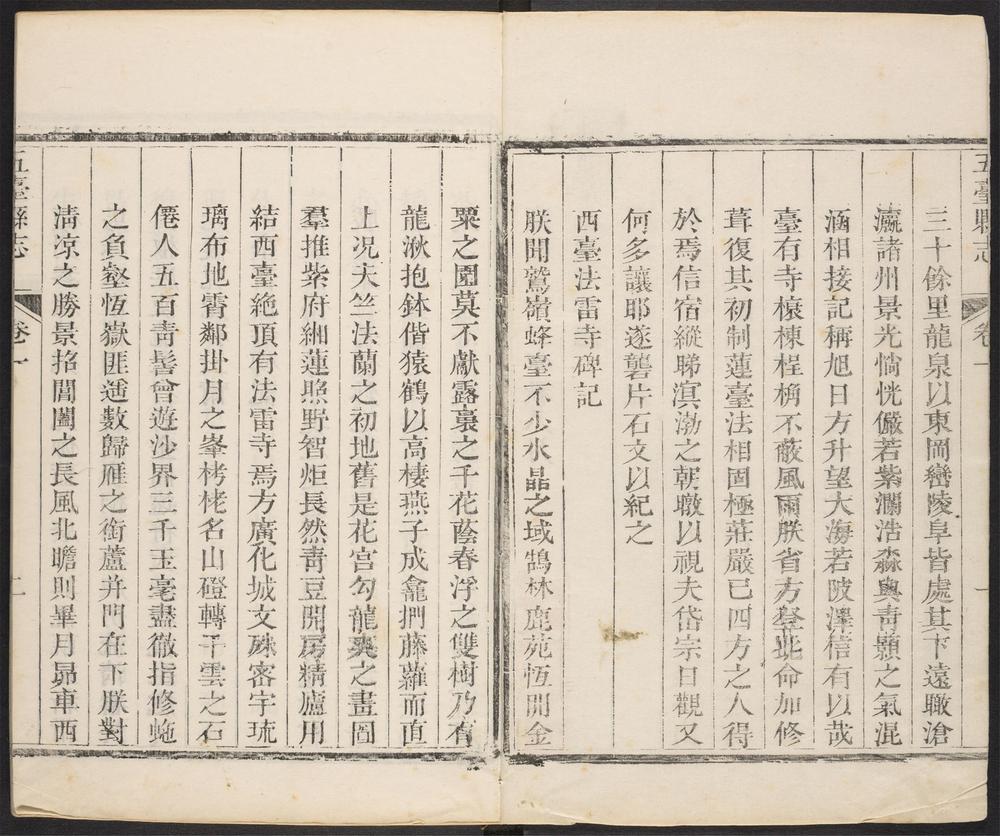 五臺縣志
卷一
三十餘里龍泉以東岡巒陵阜皆處其下遠瞰滄
瀛諸州景光惝恍儼若紫瀾浩淼與靑顥之氣混
涵相接記稱旭日方升望大海若陂澤信有以哉
臺有寺榱棟桯桷不蔽風雨朕省方登此命加修
葺復其初制蓮臺法相固極莊嚴已四方之人得
於焉信宿縱睇溟渤之朝暾以視夫岱宗日觀又
何多讓耶遂礱片石文以紀之
西臺法雷寺碑記
朕聞鷲嶺蜂臺不少水晶之域鵠林鹿苑恆開金
粟之園莫不獻露裛之千花蔭春浮之雙樹乃有
龍湫抱鉢偕猿鶴以高棲燕子成龕捫藤蘿而直
上况夫竺法蘭之初地舊是花宮勾龍爽之畫圖
羣推紫府緗蓮照野智炬長然靑豆開房精廬用
結西臺絶頂有法雷寺焉方廣化城文疎密宇琉
璃布地霄鄰掛月之峯栲栳名山磴轉干雲之石
僊人五百靑髻曾遊沙界三千玉毫盡徹指修虵
之負壑恆嶽匪遥數歸雁之銜蘆并門在下朕對
淸凉之勝景招閶闔之長風北瞻則畢月昴車西
五臺縣志
卷一
二